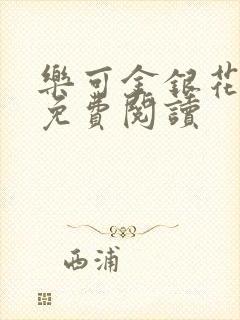 樂可金銀花
免費閱讀
西浦